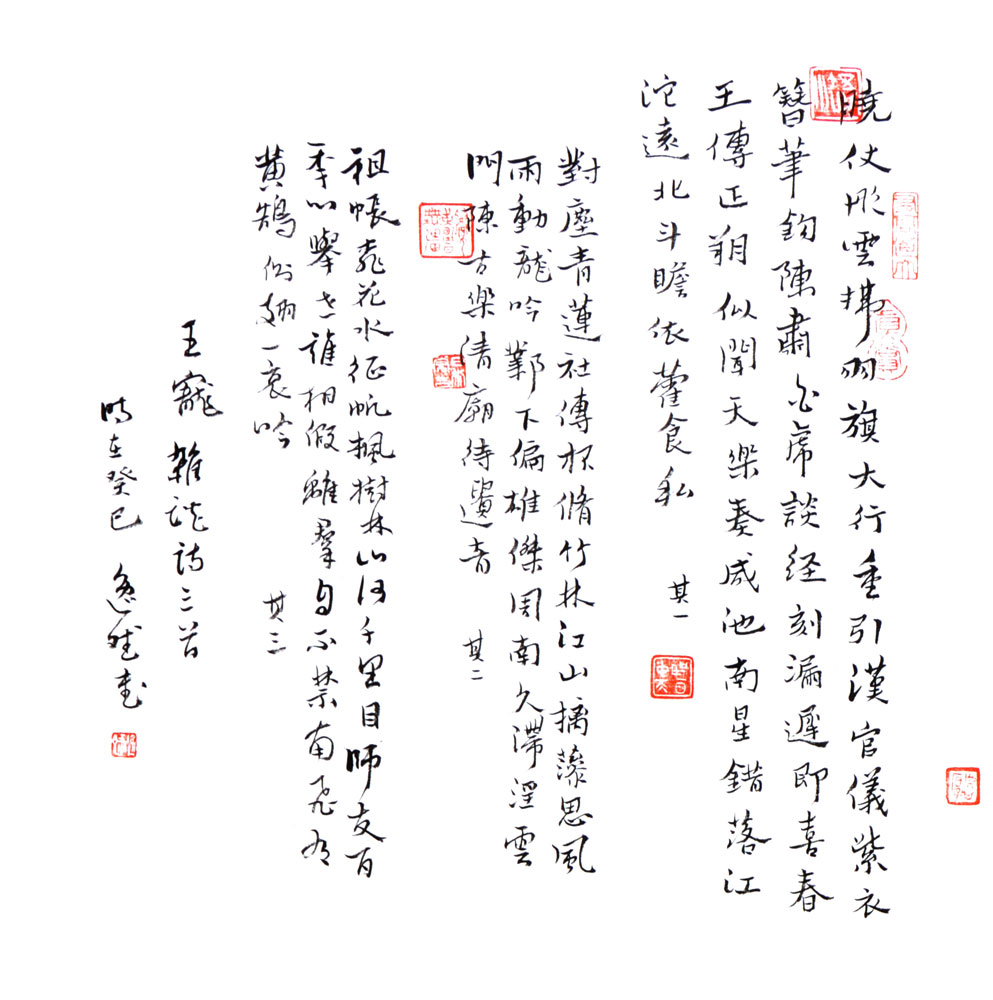 曉仗彤雲拂羽旗大行重引漢官儀紫衣
簪筆鈎陳肅白虎談経刻漏遲即喜春
王傳正朔似聞天樂奏咸池南星錯落江
沱遠北斗瞻依藿食私
其一
對塵青蓮社傳杯脩竹林江山摛藻思風
雨動龍吟鄴下偏雄傑周南久滯淫雲
門陳古樂清廟待遺音
其二
祖帳飛花水征帆楓樹林山河千里目師友百
季心舉世誰相假離羣自不禁南飛有
黄鵠側翅一哀吟
其三
王寵雜詠詩三首
時在癸巳